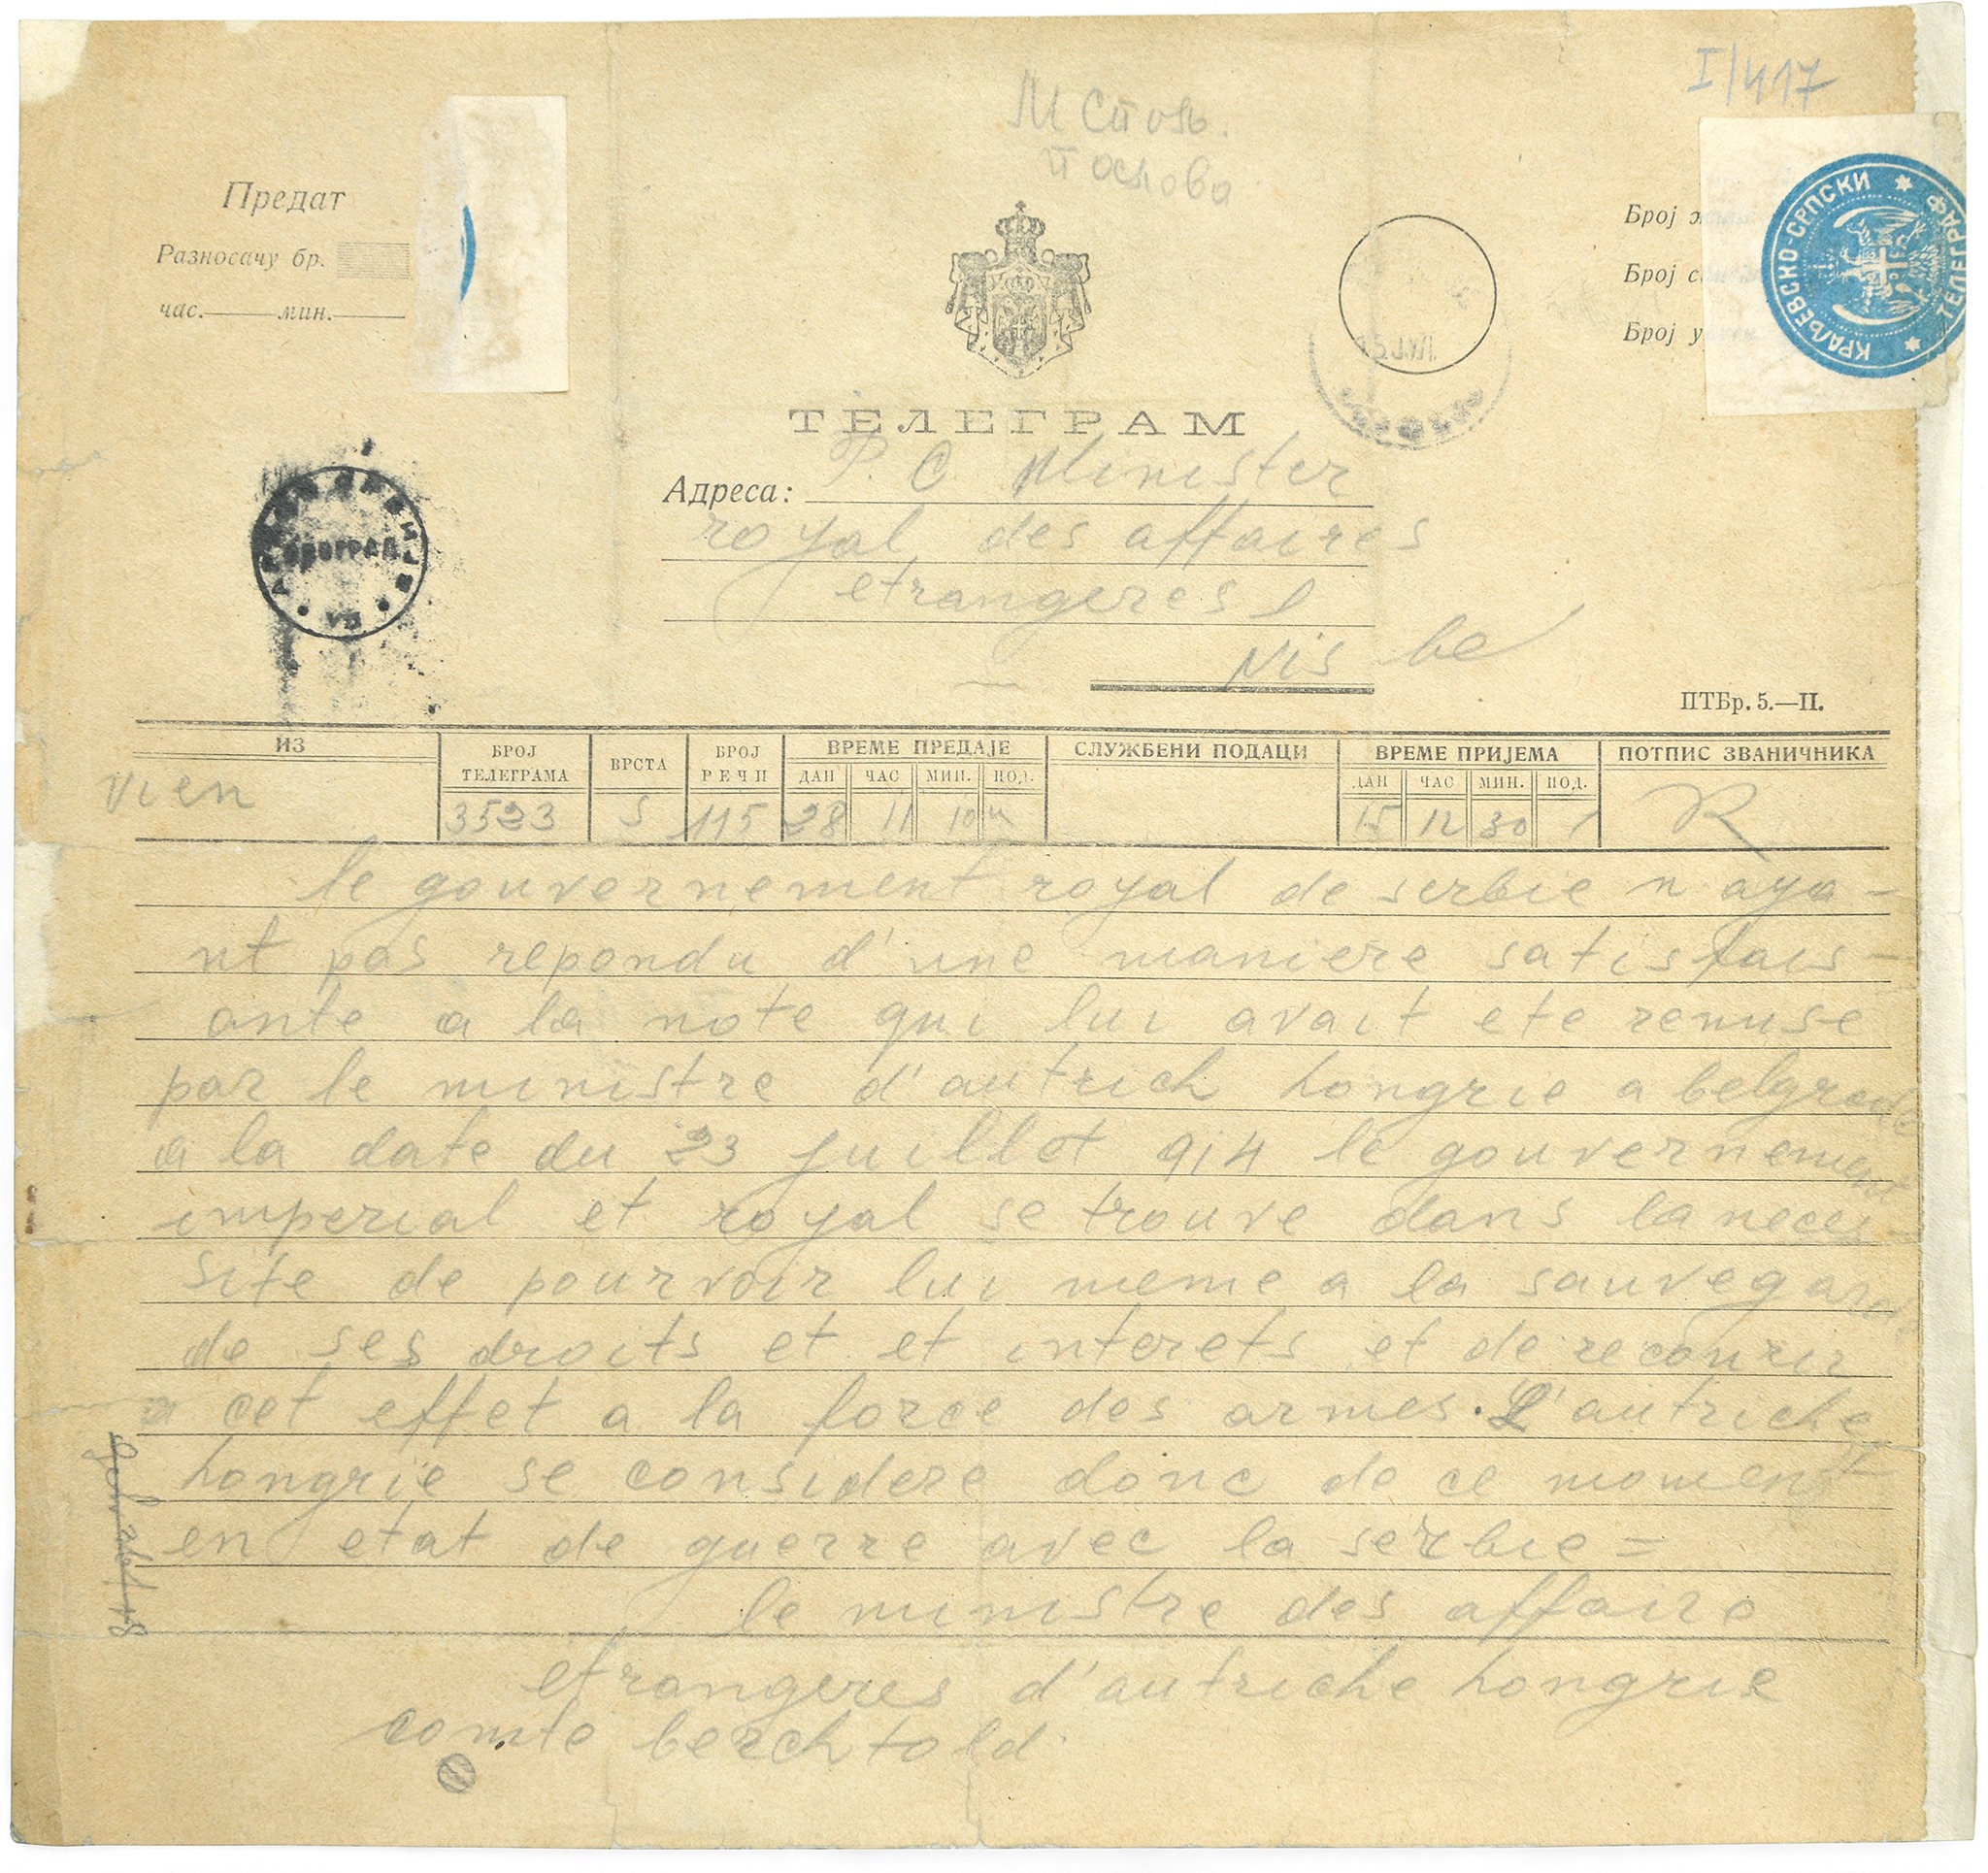 I/417
М Спољ.
Послова
Предат
Разносачу бр.
час. мин.
Број
Број
Број
КРАЉЕВСКО-СРПСКИ ТЕЛЕГРАФ
15 JVI
ТЕЛЕГРАМ
Адреса: P. C. Minister
royal des affaires
etrangeres
Nis be
БЕОГРАД
ПТБр. 5.—II.
ИЗ БРОЈ ТЕЛЕГРАМА ВРСТА БРОЈ РЕЧИ ВРЕМЕ ПРЕДАЈЕ СЛУЖБЕНИ ПОДАЦИ ВРЕМЕ ПРИЈЕМА ПОТПИС ЗВАНИЧНИКА
ДАН ЧАС МИН. ПОД. ДАН ЧАС МИН. ПОД.
vien 3523 S 115 28 11 10 15 12 30 R
le gouvernement royal de serbie n aya-
nt pas repondu d'une maniere satisfais-
ante a la note qui lui avait ete remise
par le ministre d'autrich hongrie a belgrade
a la date du 23 juillet 914 le gouvernement
imperial et royal se trouve dans la neces-
site de pourvoir lui meme a la sauvegarde
de ses droits et et interets et de recourir
a cet effet a la force des armes. L'autriche
hongrie se considere donc de ce moment
en etat de guerre avec la serbie =
le ministre des affaire
etrangeres d'autriche hongrie
comte berchtold